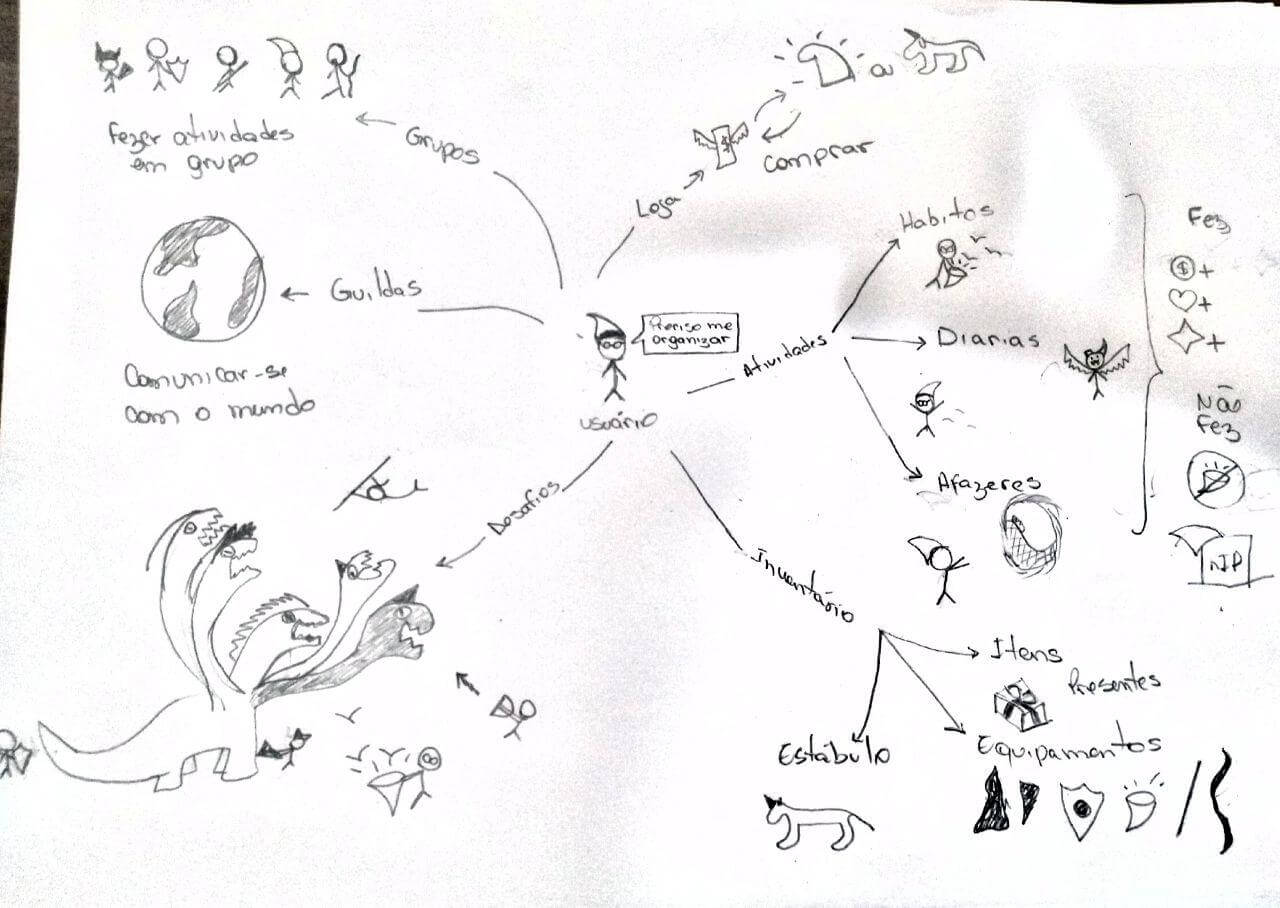 Fezer atividades
em grupo
Grupos
Guildas
Comunicar-se
com o mundo
Loja
Comprar
ou
Preciso me
organizar
usuário
Atividades
Habitos
Diarias
Afazeres
Fez
$+
+
+
Não
Fez
RIP
Desafios
Inventário
Itens
Presentes
Equipamentos
Estábulo